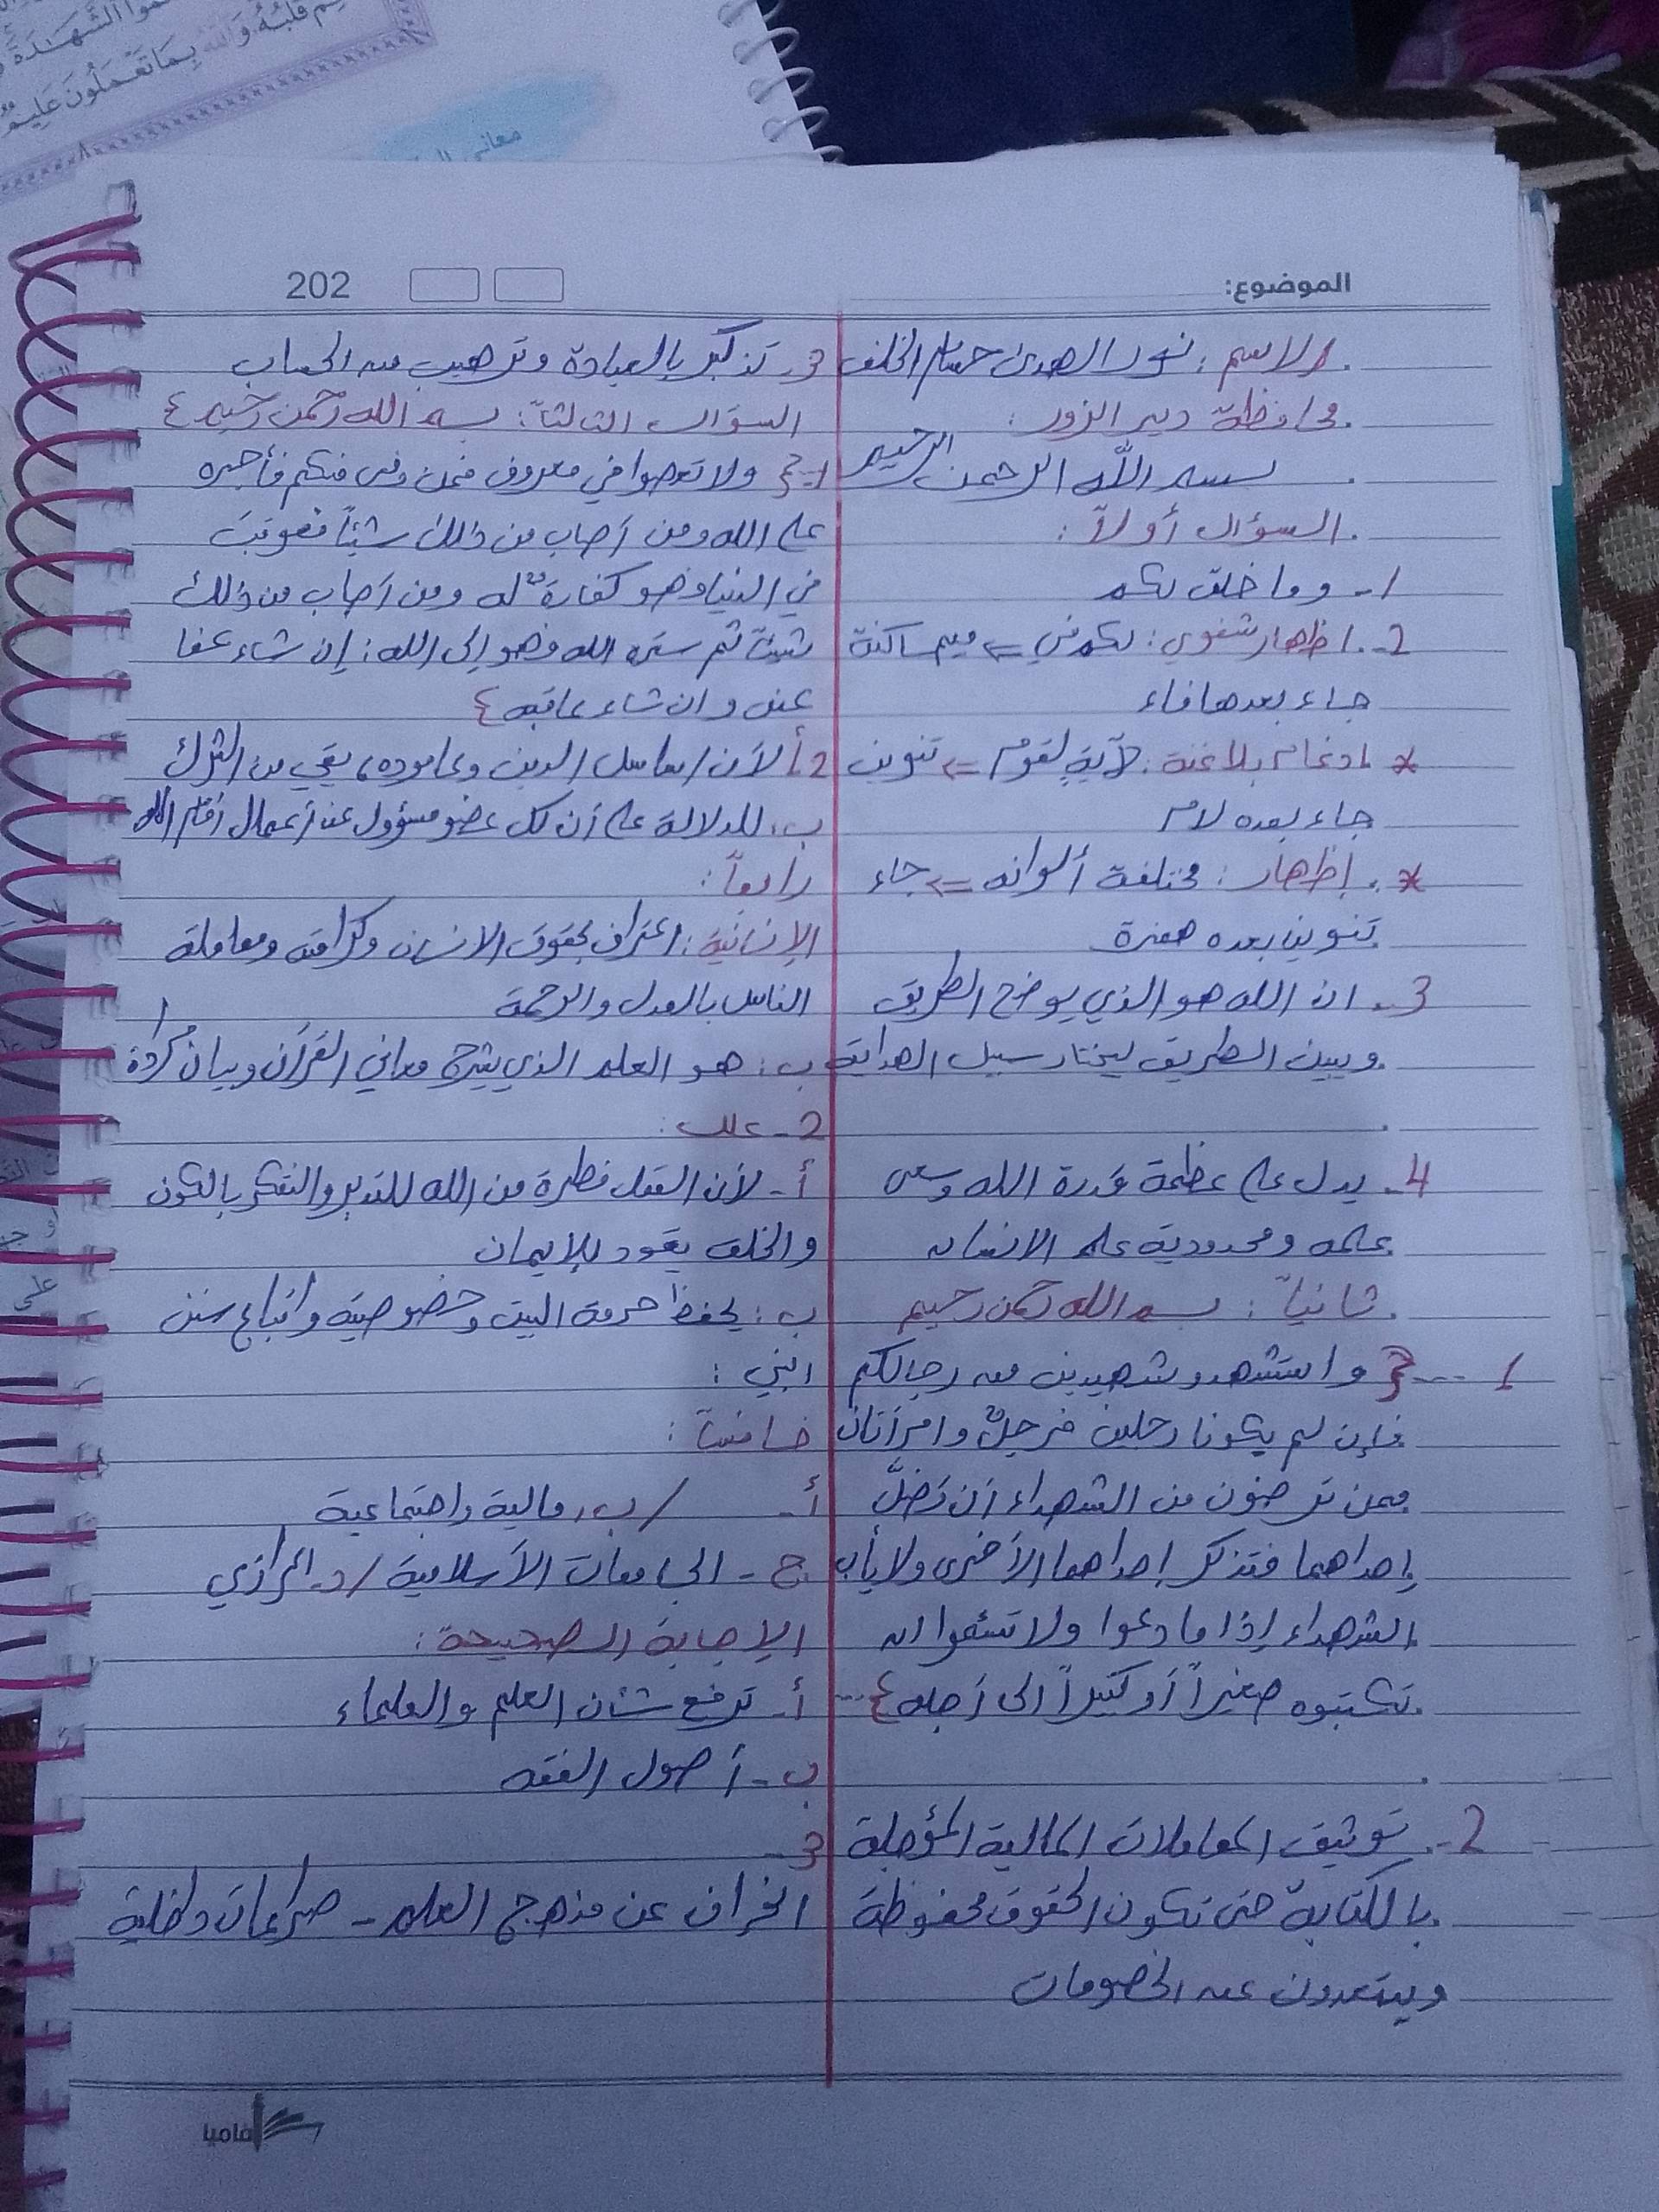 الموضوع:
202
الاسم: نور الهدى حسام الخلف
محافظة دير الزور:
بسم الله الرحمن الرحيم
السؤال أولاً:
1- وما خلق لكم
2- إظهار شفوي: لكم في => ميم ساكنة
جاء بعدها فاء
* إدغام بلا غنة: لآيةٍ لقوم => تنوين
جاء بعده لام
* إظهار: مختلفة ألوانه => جاء
تنوين بعده همزة
3- ان الله هو الذي يوضح الطريق
ويبين الطريق ليختار سبيل الهداية
4- يدل على عظمة قدرة الله وسعى
علمه ومحدودية علم الانسان
ثانياً: بسم الله رحمن رحيم
1 ---{ واستشهدو شهيدين من رجالكم
فإن لم يكونا رجلين فرجلٌ وامرأتان
ممن ترضون من الشهداء أن تضلَّ
إحداهما فتذكر إحداهما الأخرى ولا يأب
الشهداء إذا ما دعوا ولا تسئموا ان
تكتبوه صغيراً أو كبيراً الى أجله } ...
2- توثيق المعاملات المالية المؤجلة
بالكتابة حتى تكون الحقوق محفوظة
ويبتعدون عن الخصومات
3- تذكير بالعبادة وترهيب من الحساب
السؤال الثالثاً: بسم الله رحمن رحيم }
1-{ ولا تعصوا في معروف فمن وفى منكم فأجره
على الله ومن أصاب من ذلك شيئاً فعوقب
في الدنيا فهو كفارةٌ له ومن أصاب من ذلك
شيئاً ثم ستره الله فهو إلى الله: إن شاء عفا
عنه وان شاء عاقبه }
2 أ. لأن اساس الدين وعاموده، يقي من الشرك
ب. للدلالة على أن كل عضو مسؤول عن أعمال أمام الله
رابعاً:
الإنسانية: اعتراف بحقوق الانسان وكرامته ومعاملة
الناس بالعدل والرحمة
ب: هو العلم الذي يشرح معاني القرآن وبيان مُراده
2- علل:
أ- لأن العقل فطرة من الله للتدبر والتفكر بالكون
والخلق يقود للإيمان
ب: يحفظ حرمة البيت وخصوصيته واتباع سنن
النبي:
خامساً:
أ- / ب. مالية واجتماعية
ج- الجامعات الأسلامية / د- الرازي
الإجابة الصحيحة:
أ- ترفع شأن العلم والعلماء
ب- أصول الفقه
3-
انحراف عن منهج العلم - صراعات داخلية
فاميا
معاني
بِمَا تَعْمَلُونَ عَلِيمٌ
على